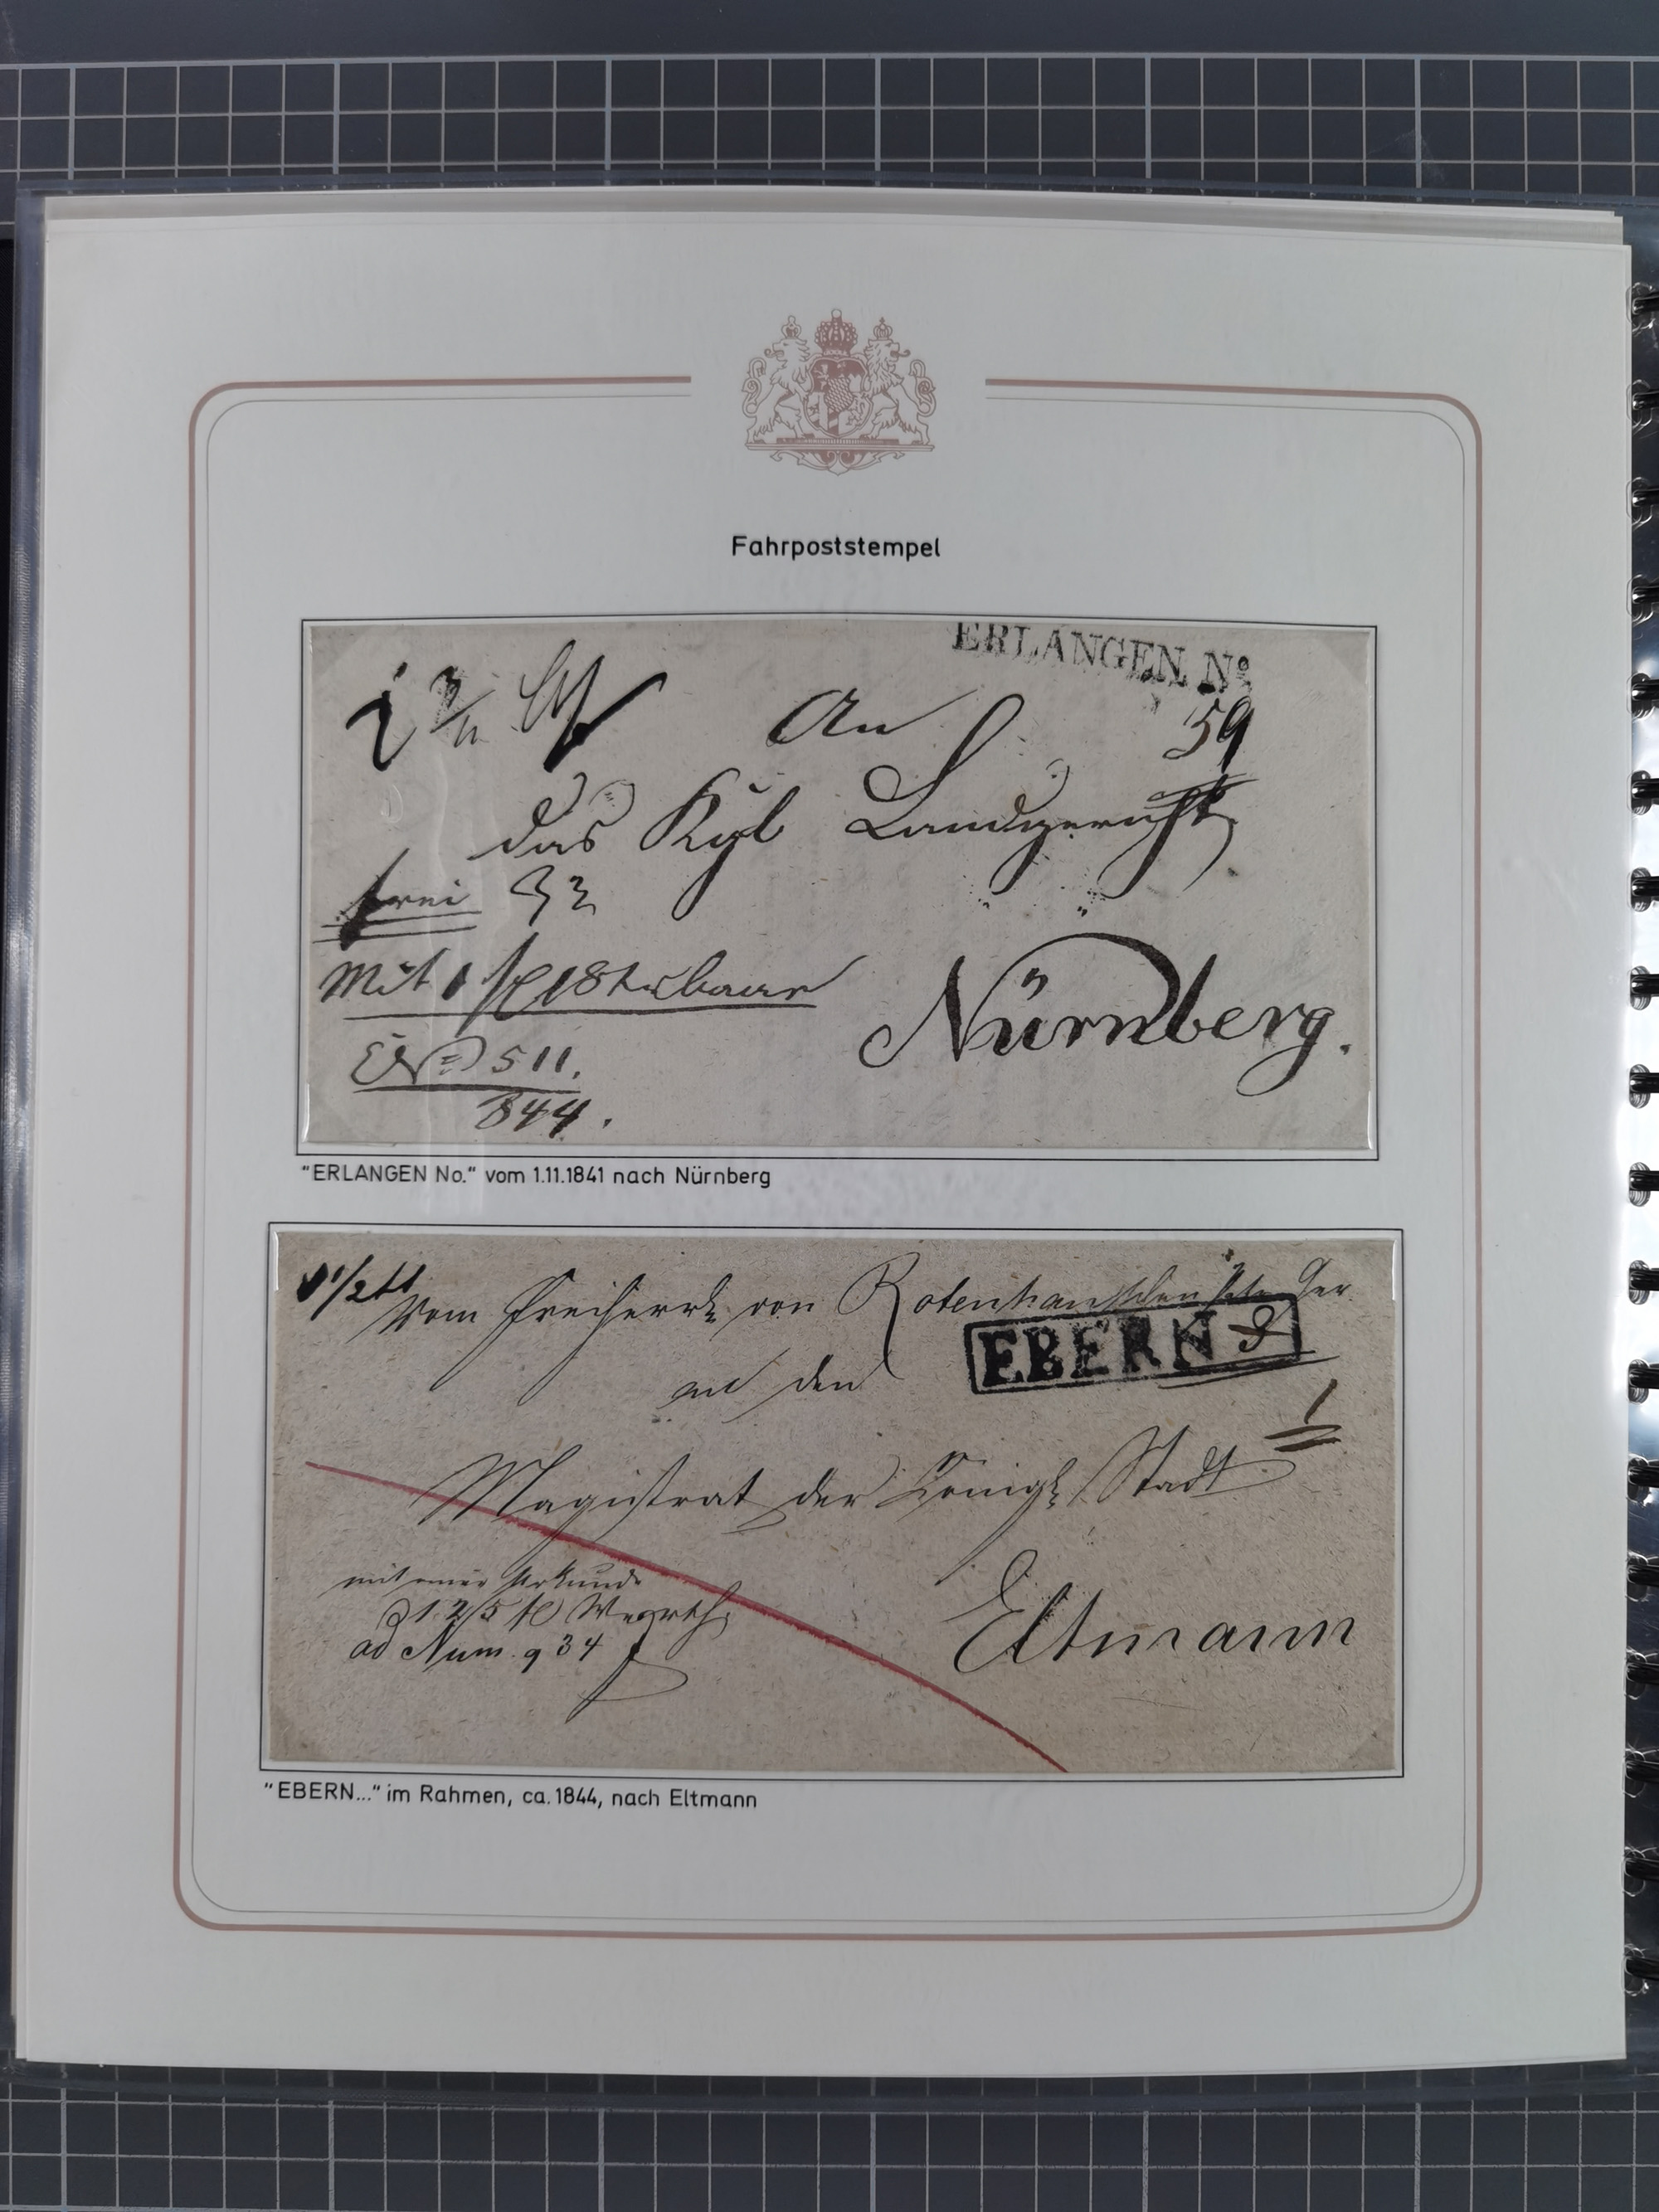 Fahrpoststempel
ERLANGEN. No
An
59
das Kgl Landgericht
frei
Mit 1 18 baar
Nürnberg.
511.
844.
"ERLANGEN No." vom 1.11.1841 nach Nürnberg
1/2
Vom Freiherrl von Rotenhanschen
EBERN 9
an den
1
Magistrat der Königl Stadt
mit einer Urkunde
ad Num. 934
Eltmann
"EBERN..." im Rahmen, ca. 1844, nach Eltmann